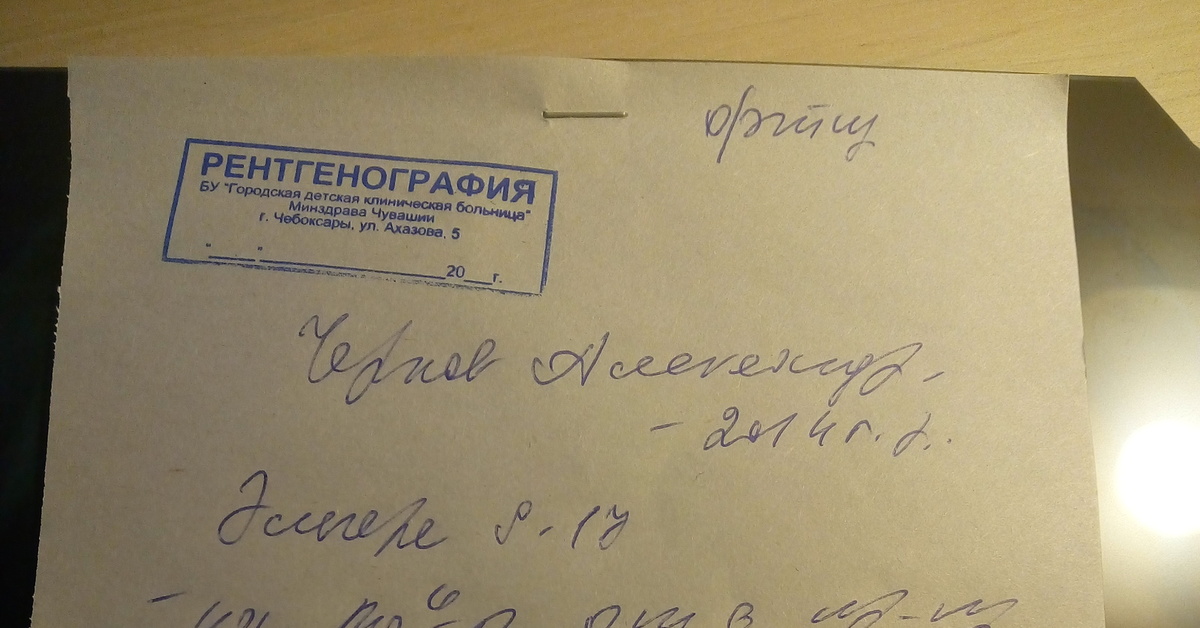 ортц
РЕНТГЕНОГРАФИЯ
БУ "Городская детская клиническая больница"
Минздрава Чувашии
г. Чебоксары, ул. Ахазова, 5
"____"____________________20___г.
Чернов Александр.
- 2014 г. р.
Эльгера 8-17